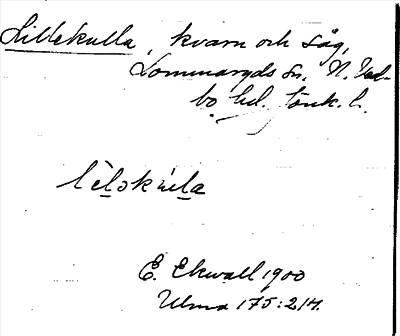 Lillekulla, kvarn och såg,
Lommaryds sn. N. Ved-
bo hd. Jönk. l.
lɛ̀lɔkɯ́la
E. Ekwall 1900
Ulma 175:214.